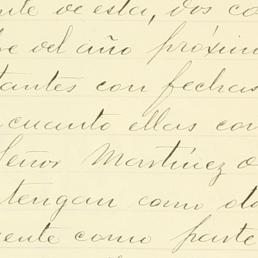 nte de esta, dos co
re del año próxim
tantes con fechas
cuanto ellas con
Señor Martínez o
tengan como de
ente como parte